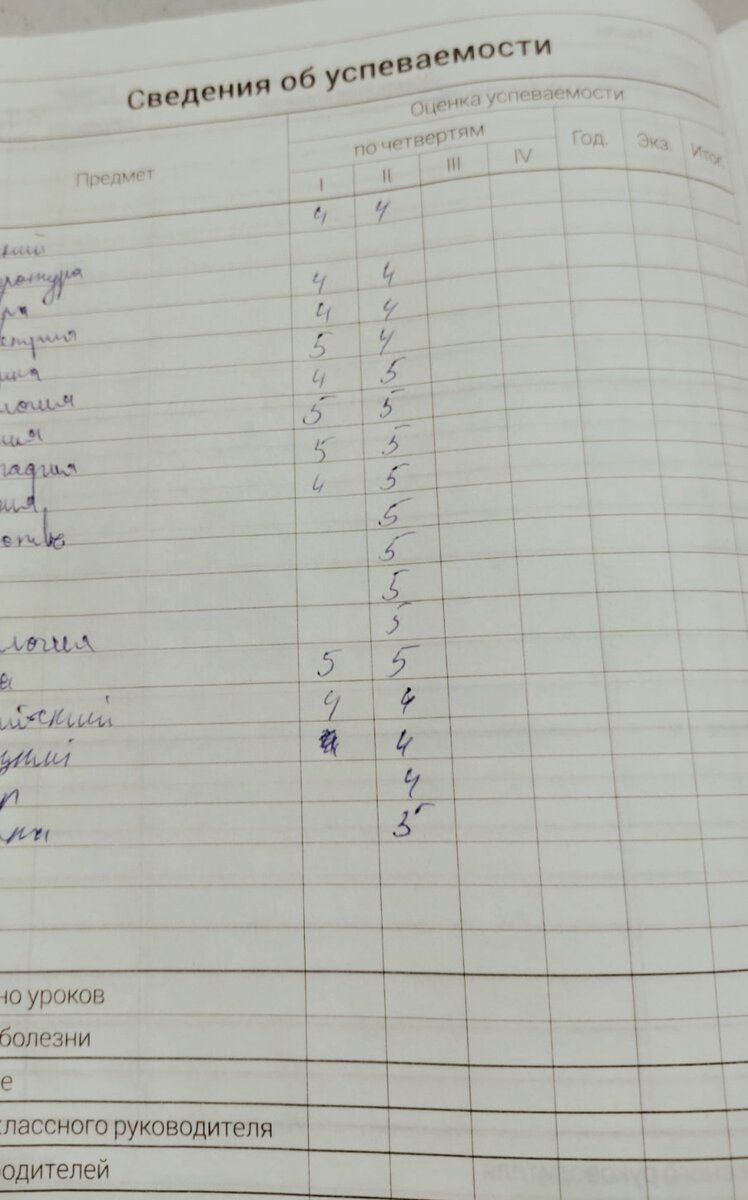 Сведения об успеваемости
Предмет
Оценка успеваемости
по четвертям
Год.
Экз.
Итог.
I
II
III
IV
4 4
кий
ература 4 4
ра 4 4
5 4
4 5
логия 5 5
ия 5 5
4 5
ия 5
ство 5
5
логия 5
а 5 5
ийский 4 4
цкий 4
р 4
5
но уроков
болезни
е
классного руководителя
родителей